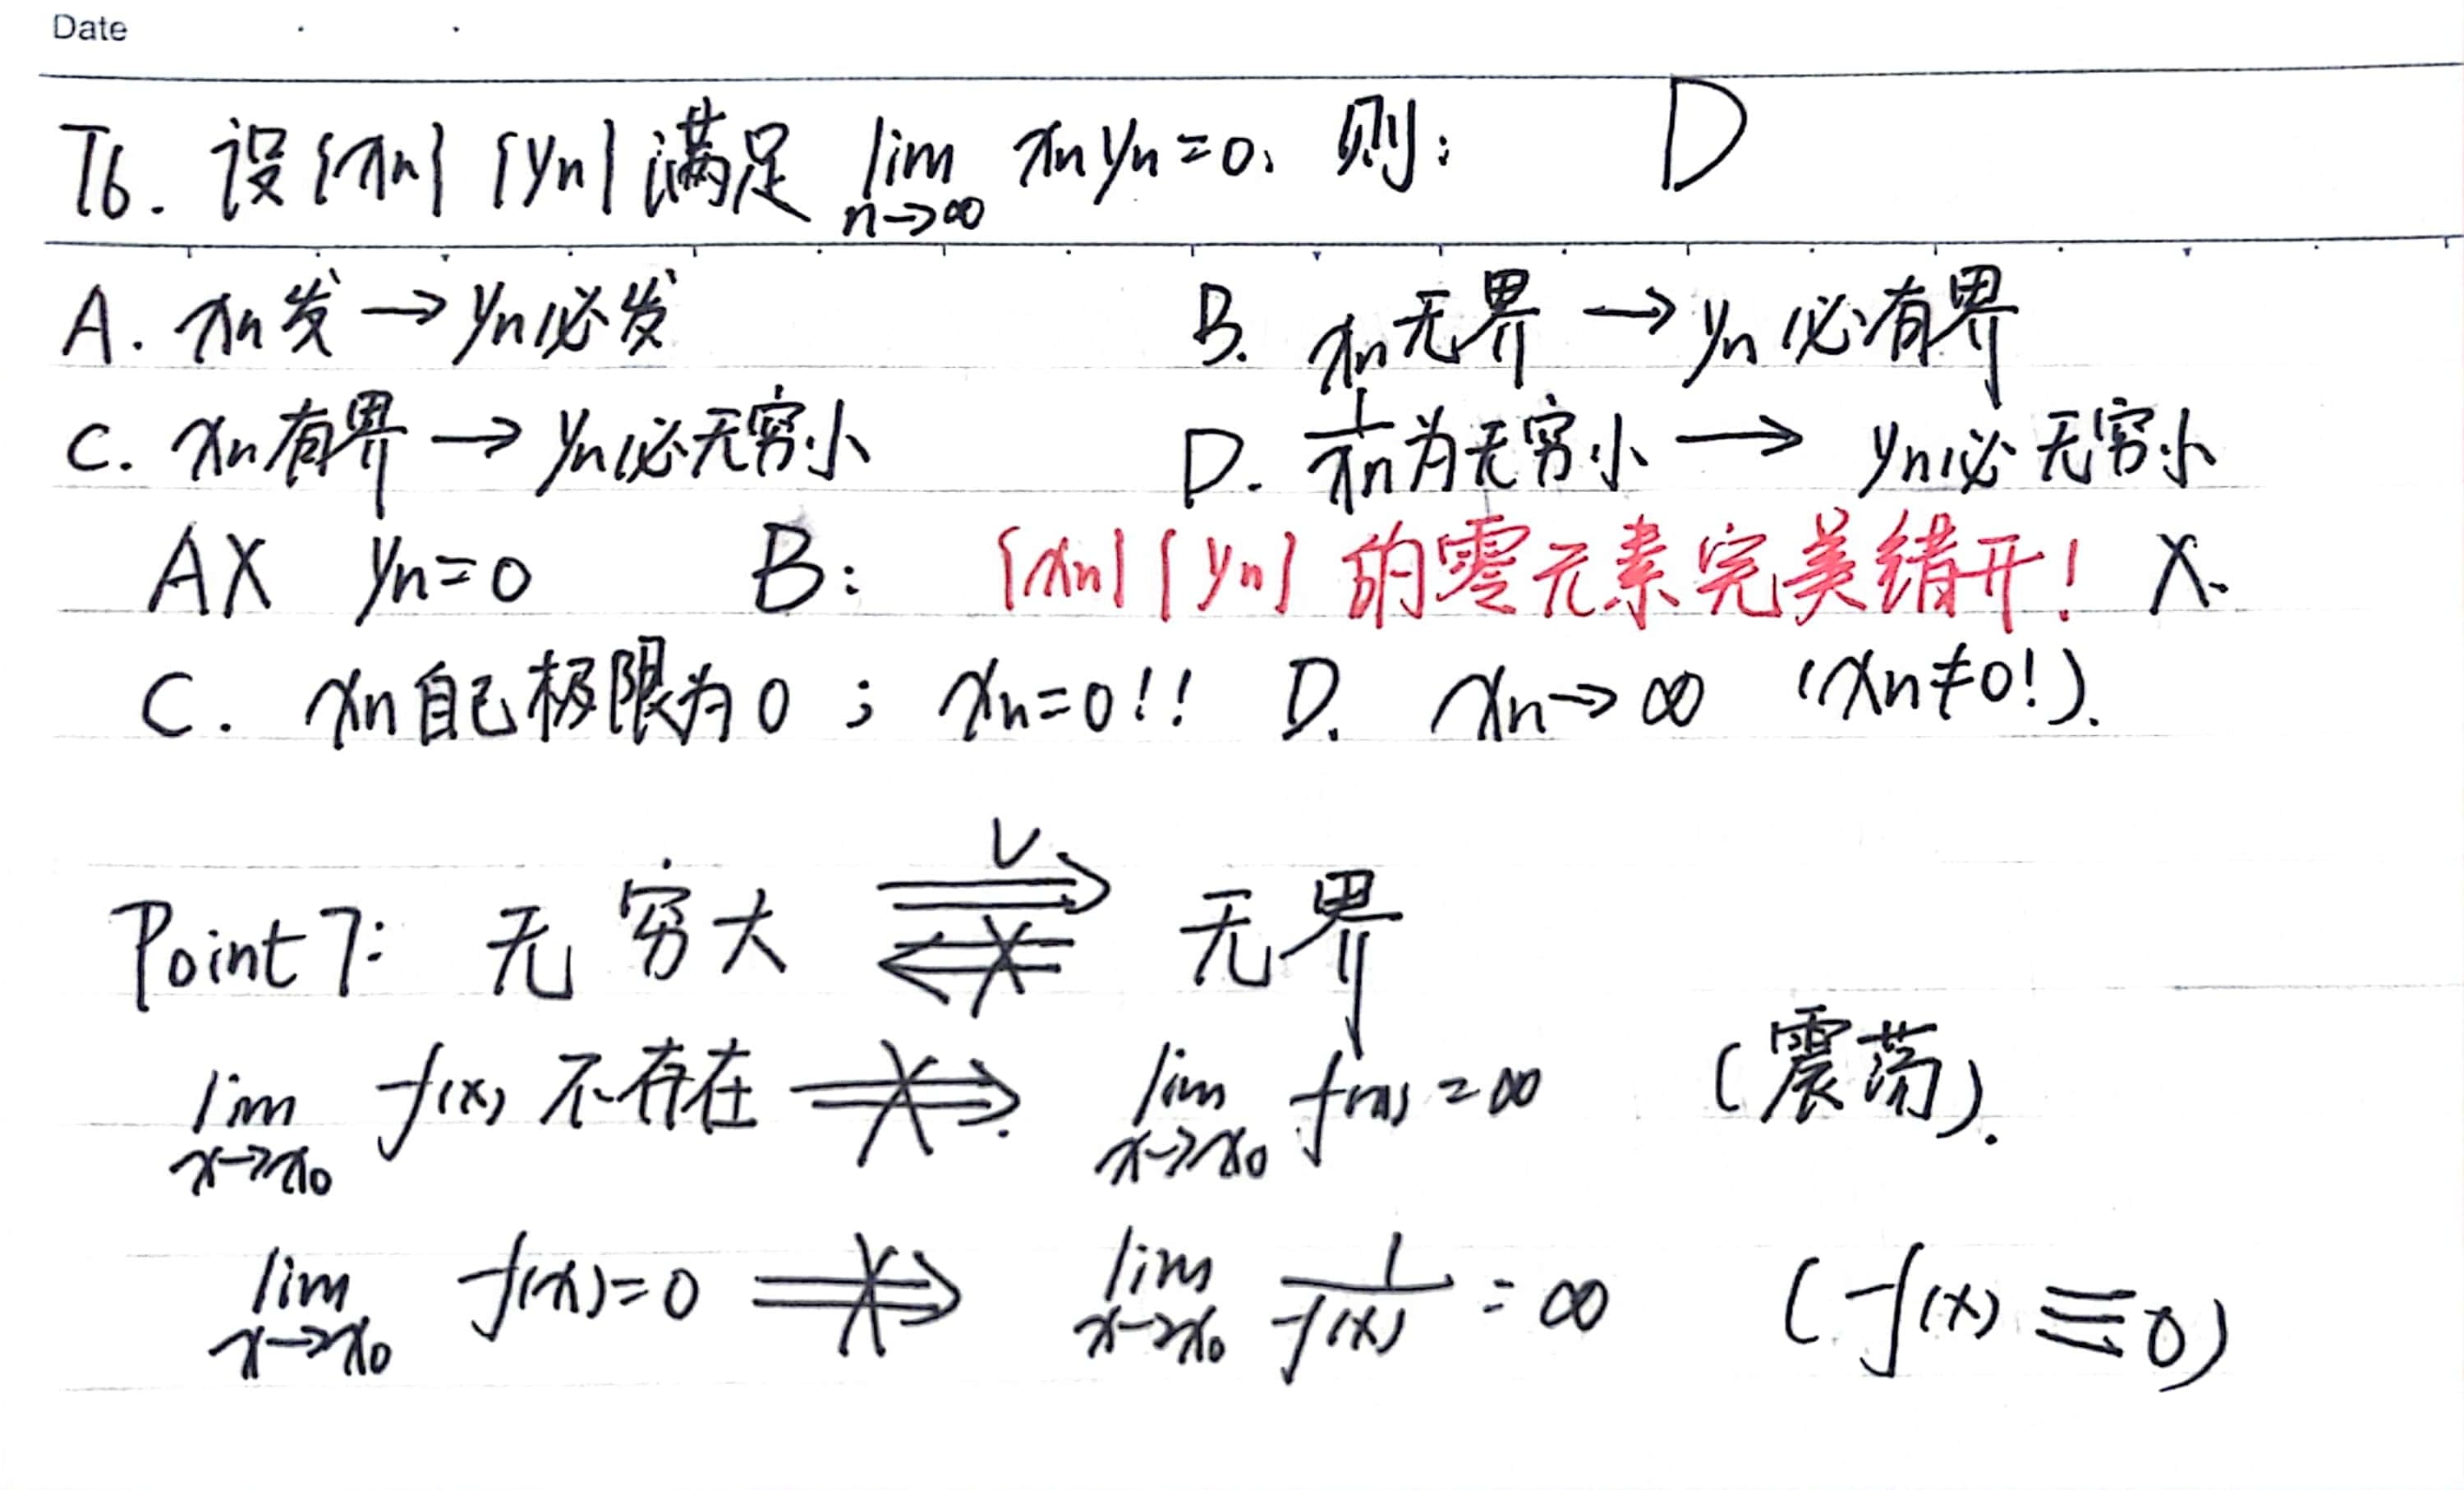 Date
T6. 设{xn} {yn}满足 lim n→∞ xnyn=0, 则: D
A. xn发→yn必发 B. xn无界→yn必有界
C. xn有界→yn必无穷小 D. 1/xn为无穷小→yn必无穷小
AX yn=0 B: {xn}{yn}的零元素完美错开! X.
C. xn自己极限为0; xn=0!! D. xn→∞ (xn≠0!).
Point 7: 无穷大 ⇒ ✓ ⇐ X 无界
lim x→x0 f(x) 不存在 ⇏ lim x→x0 f(x)=∞ (震荡).
lim x→x0 f(x)=0 ⇏ lim x→x0 1/f(x) = ∞ (f(x)≡0)